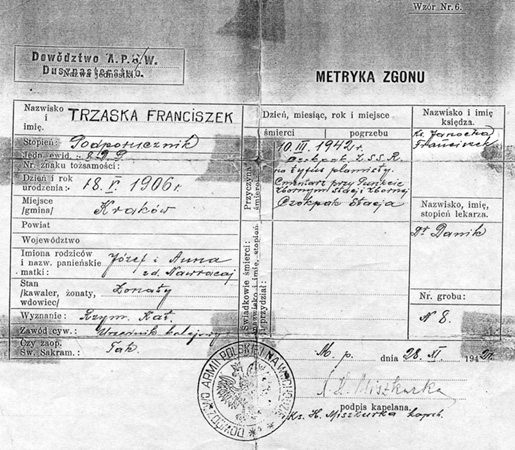 Wzór Nr. 6.
Dowództwo A.P.n/W.
Duszpasterstwo.
Nazwa jednostki.
METRYKA ZGONU
Nazwisko i imię. TRZASKA FRANCISZEK
Stopień: Podporucznik
Jedn. ewid.:
Nr. znaku tożsamości:
Dzień i rok urodzenia: 18. V. 1906 r.
Miejsce /gmina/ Kraków
Powiat
Województwo
Imiona rodziców i nazw. panieńskie matki: Józef i Anna
z d. Nawracaj
Stan /kawaler, żonaty, wdowiec/ Żonaty
Wyznanie: Rzym. Kat.
Zawód cyw.: Urzędnik kolejowy
Czy zaop. Św. Sakram.: Tak
Przyczyny śmierci:
Świadkowie śmierci: nazwisko i imię, stopień przydział:
Dzień, miesiąc, rok i miejsce
śmierci
pogrzebu
10. III. 1942 r.
Czokpak Z.S.S.R.
na tyfus plamisty.
Cmentarz przy Punkcie
Zbornym Stacji Zbornej
Czokpak Stacja
Nazwisko i imię księdza.
Ks. Janocha
Franciszek
Nazwisko, imię, stopień lekarza.
Dr Danik
Nr. grobu:
N 8.
M. p. dnia 28. XI. 1942 r.
Miszkurka
podpis kapelana.
Ks. K. Miszkurka kapelan
DOWÓDZTWO ARMII POLSKIEJ NA WSCHODZIE